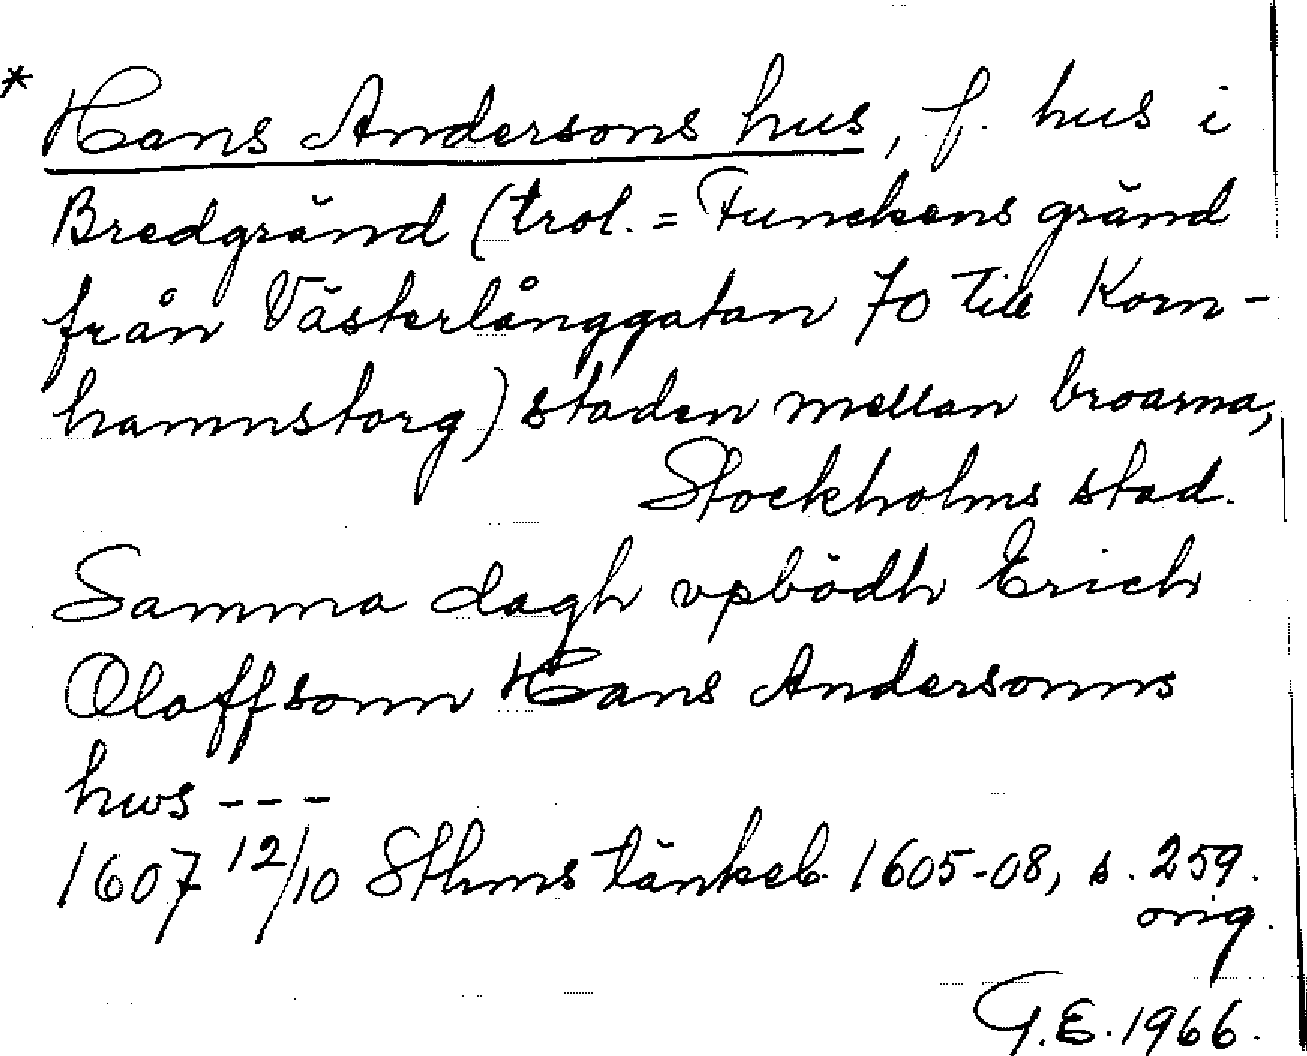 * Hans Andersons hus, f. hus i
Bredgränd (trol. = Funckens gränd
från Västerlånggatan 70 till Korn-
hamnstorg) staden mellan broarna,
Stockholms stad.
Samma dagh vpbödh Erich
Oloffsonn Hans Andersonns
hws ---
1607 12/10 Sthms tänkeb. 1605-08, s. 259.
orig.
G.E. 1966.